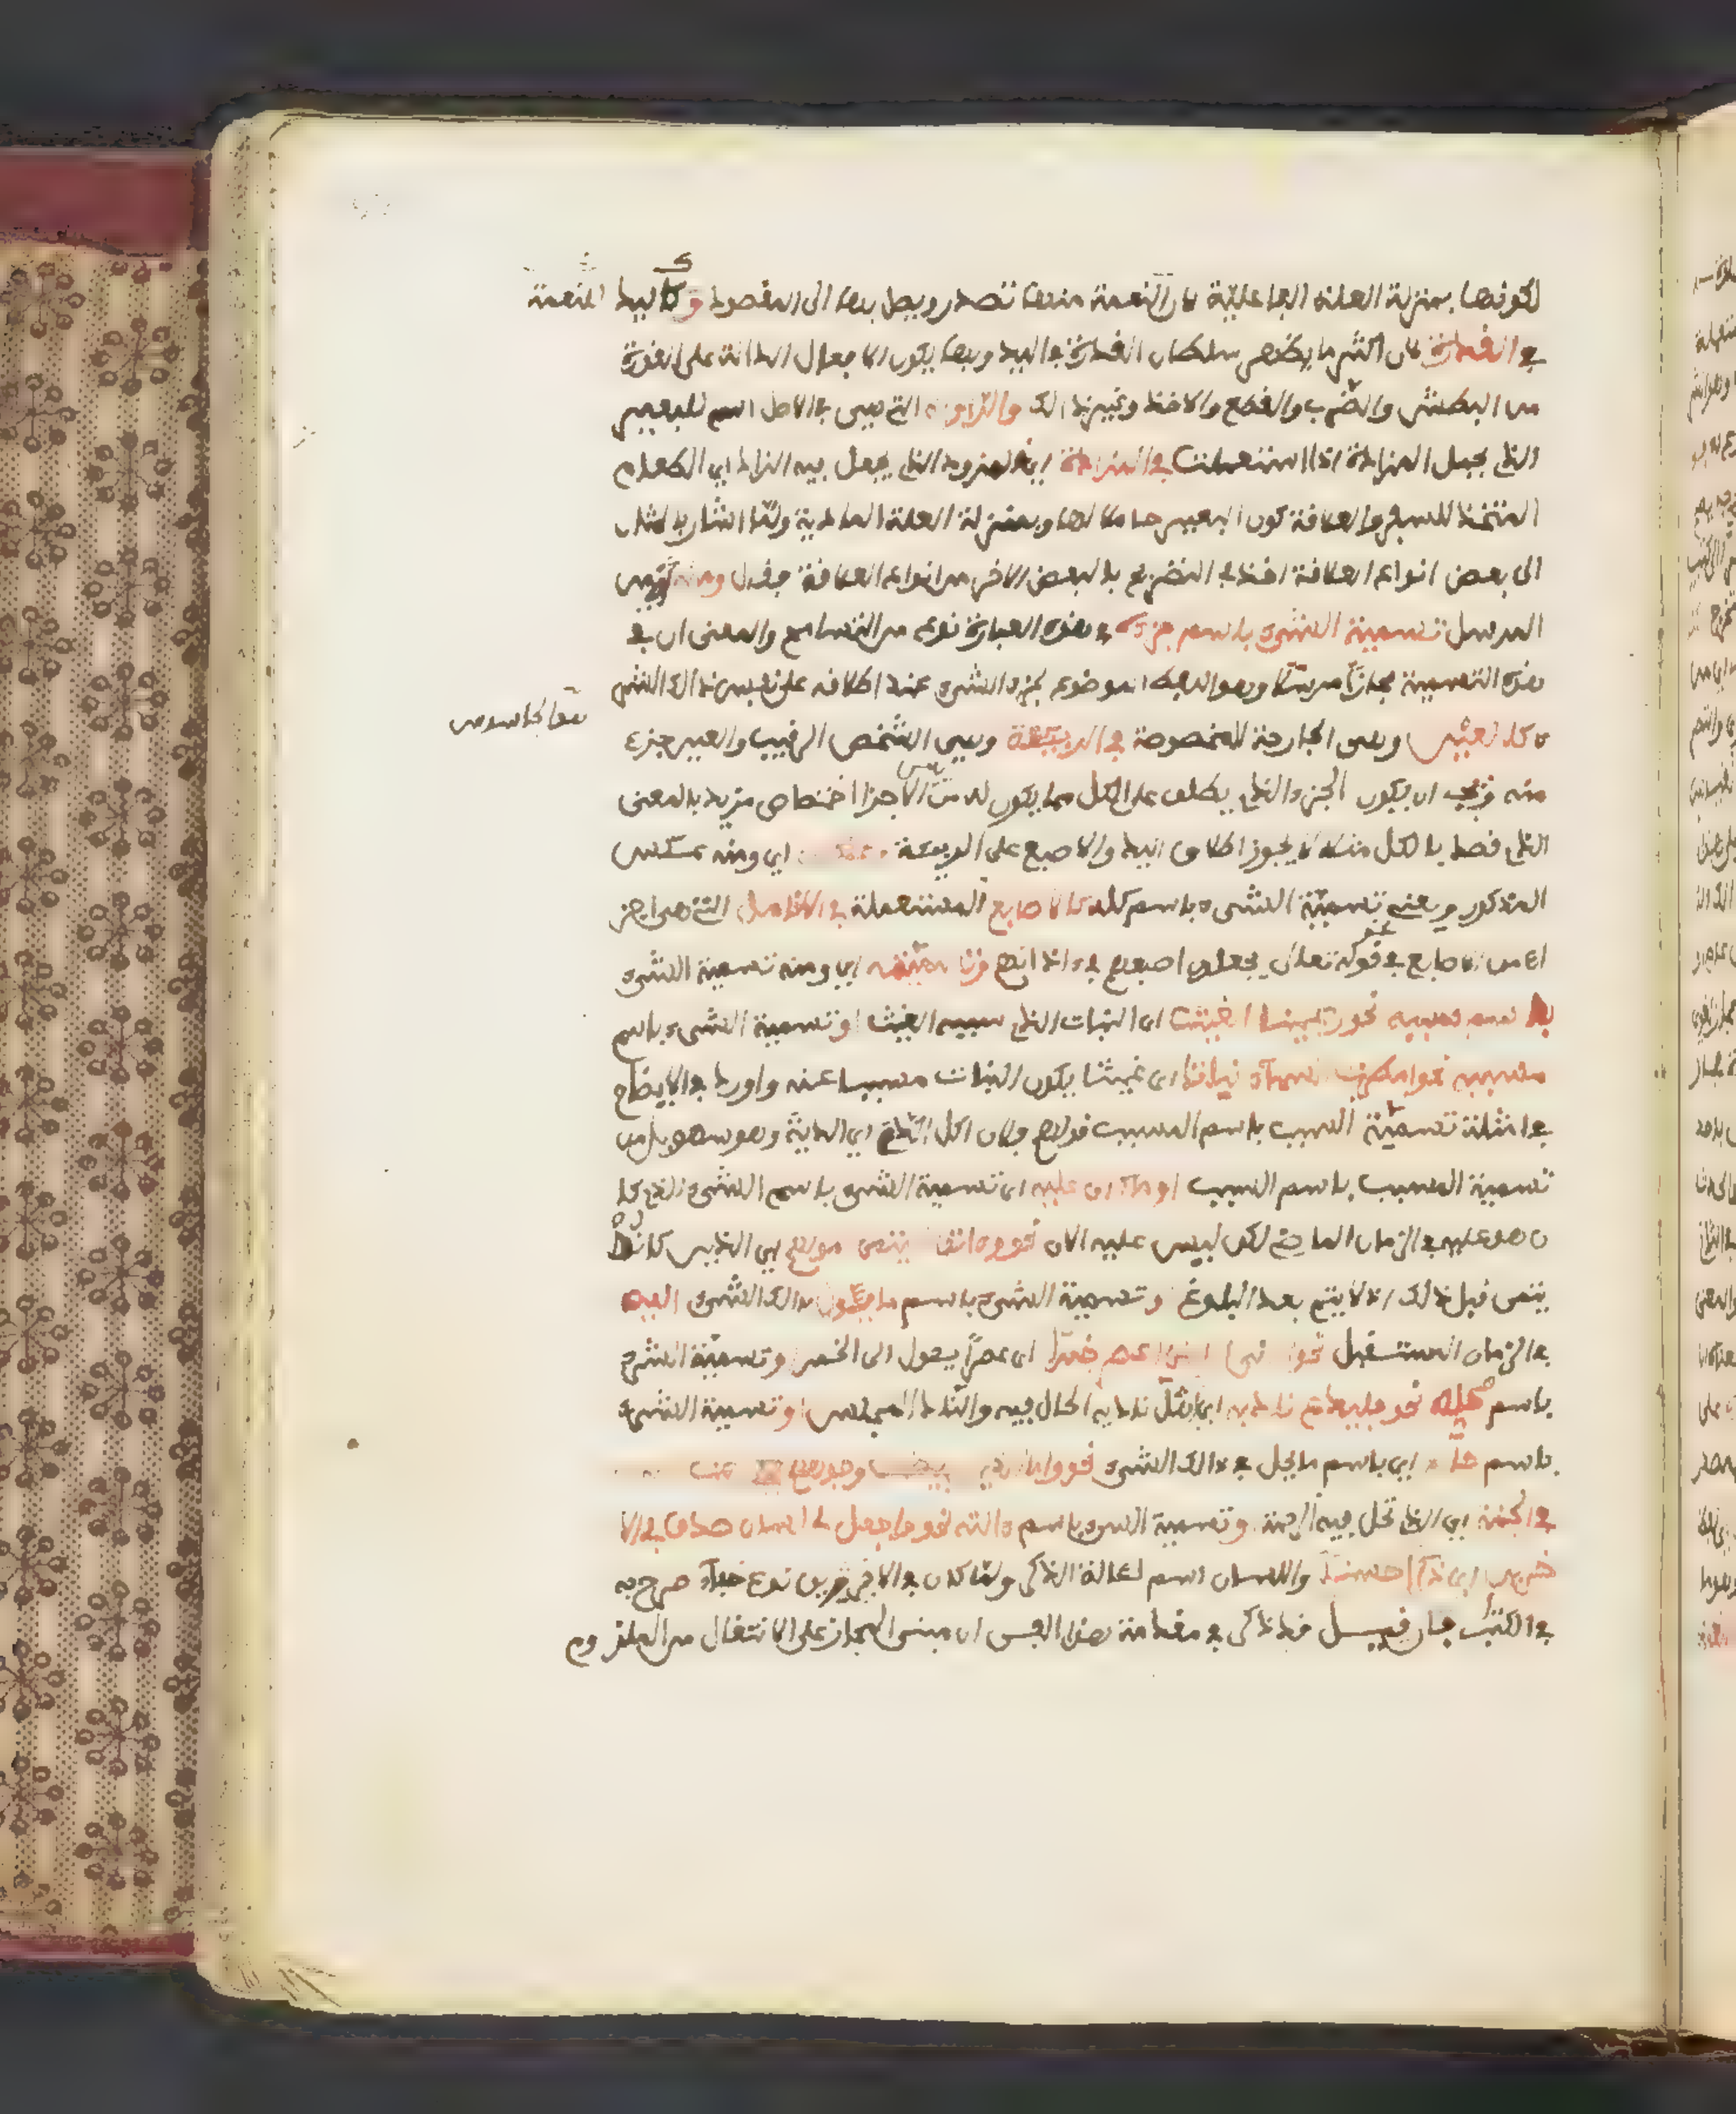 لكونها بمنزلة العلة الفاعلية لان النعمة منها تصدر ويصل بها الى المقصود وكاليد النعمة
في القدرة لان اكثر ما يظهر سلطان القدرة في اليد وبها يكون الافعال الدالة على القدرة
من البطش والضرب والقطع والاخذ وغير ذالك والراوية التي هي في الاصل اسم للبعير
الذي يحمل المزادة اذا استعملت في المزادة اي المزود الذي يجعل فيه الزاد اي الطعام
المتخذ للسفر والعلاقة كون البعير حاملا لها وبمنزلة العلة المادية ولما اشار بالمثال
الى بعض انواع العلاقة اخذ في التصريح بالبعض الاخر من انواع العلاقة فقال ومنه اي من
المرسل تسمية الشيء باسم جزءه في هذه العبارة نوع من التسامح والمعنى ان في
هذه التسمية مجازا مرسلا وهو اللفظ الموضوع لجزء الشيء عند اطلاقه على نفس ذالك الشيء
كالعين وهي الجارحة المخصوصة في الربيئة وهي الشخص الرقيب والعين جزء
هو الجاسوس
منه ويجب ان يكون الجزء الذي يطلق على الكل مما يكون له من بين الاجزا اختصاص مزيد بالمعنى
الذي قصد بالكل مثلا لا يجوز اطلاق اليد والاصبع على الربيئة وعكسه اي ومنه عكس
المذكور يعني تسمية الشيء باسم كله كالاصابع المستعملة في الانامل التي هي اجز
اء من الاصابع في قوله تعلى يجعلون اصبعهم في ءاذانهم وتسميته اي ومنه تسمية الشيء
باسم سببه نحو رعينا الغيث اي النبات الذي سببه الغيث او تسمية الشيء باسم
مسببه نحو امطرت السماء نباتا اي غيثا يكون النبات مسببا عنه واورد في الايضاح
في امثلة تسمية السبب باسم المسبب قولهم فلان اكل الدم اي الدية وهو سهو بل من
تسمية المسبب باسم السبب او ما كان عليه اي تسمية الشيء باسم الشيء الذي كا
ن هو عليه في الزمان الماضي لكن ليس عليه الان نحو وءاتوا اليتمى اموالهم اي الذين كانوا
يتمى قبل ذلك اذ لا يتم بعد البلوغ وتسمية الشيء باسم ما يئول ذالك الشيء اليه
في الزمان المستقبل نحو اني اريني اعصر خمرا اي عصيرا يئول الى الخمر وتسمية الشيء
باسم محله نحو فليدع ناديه اي اهل ناديه الحال فيه والنادي المجلس او تسمية الشيء
باسم حاله اي باسم ما يحل في ذالك الشيء نحو واما الذين ابيضت وجوههم
في الجنة اي التي تحل فيها الرحمة وتسمية الشيء باسم ءالته نحو واجعل لي لسان صدق في الا
خرين اي ذكرا حسنا واللسان اسم لءالة الذكر ولما كان في الاخيرين نوع خفاء صرح به
في الكتاب فان قيل قد ذكر في مقدمة هذا الفن ان مبنى المجاز على الانتقال من الملزوم